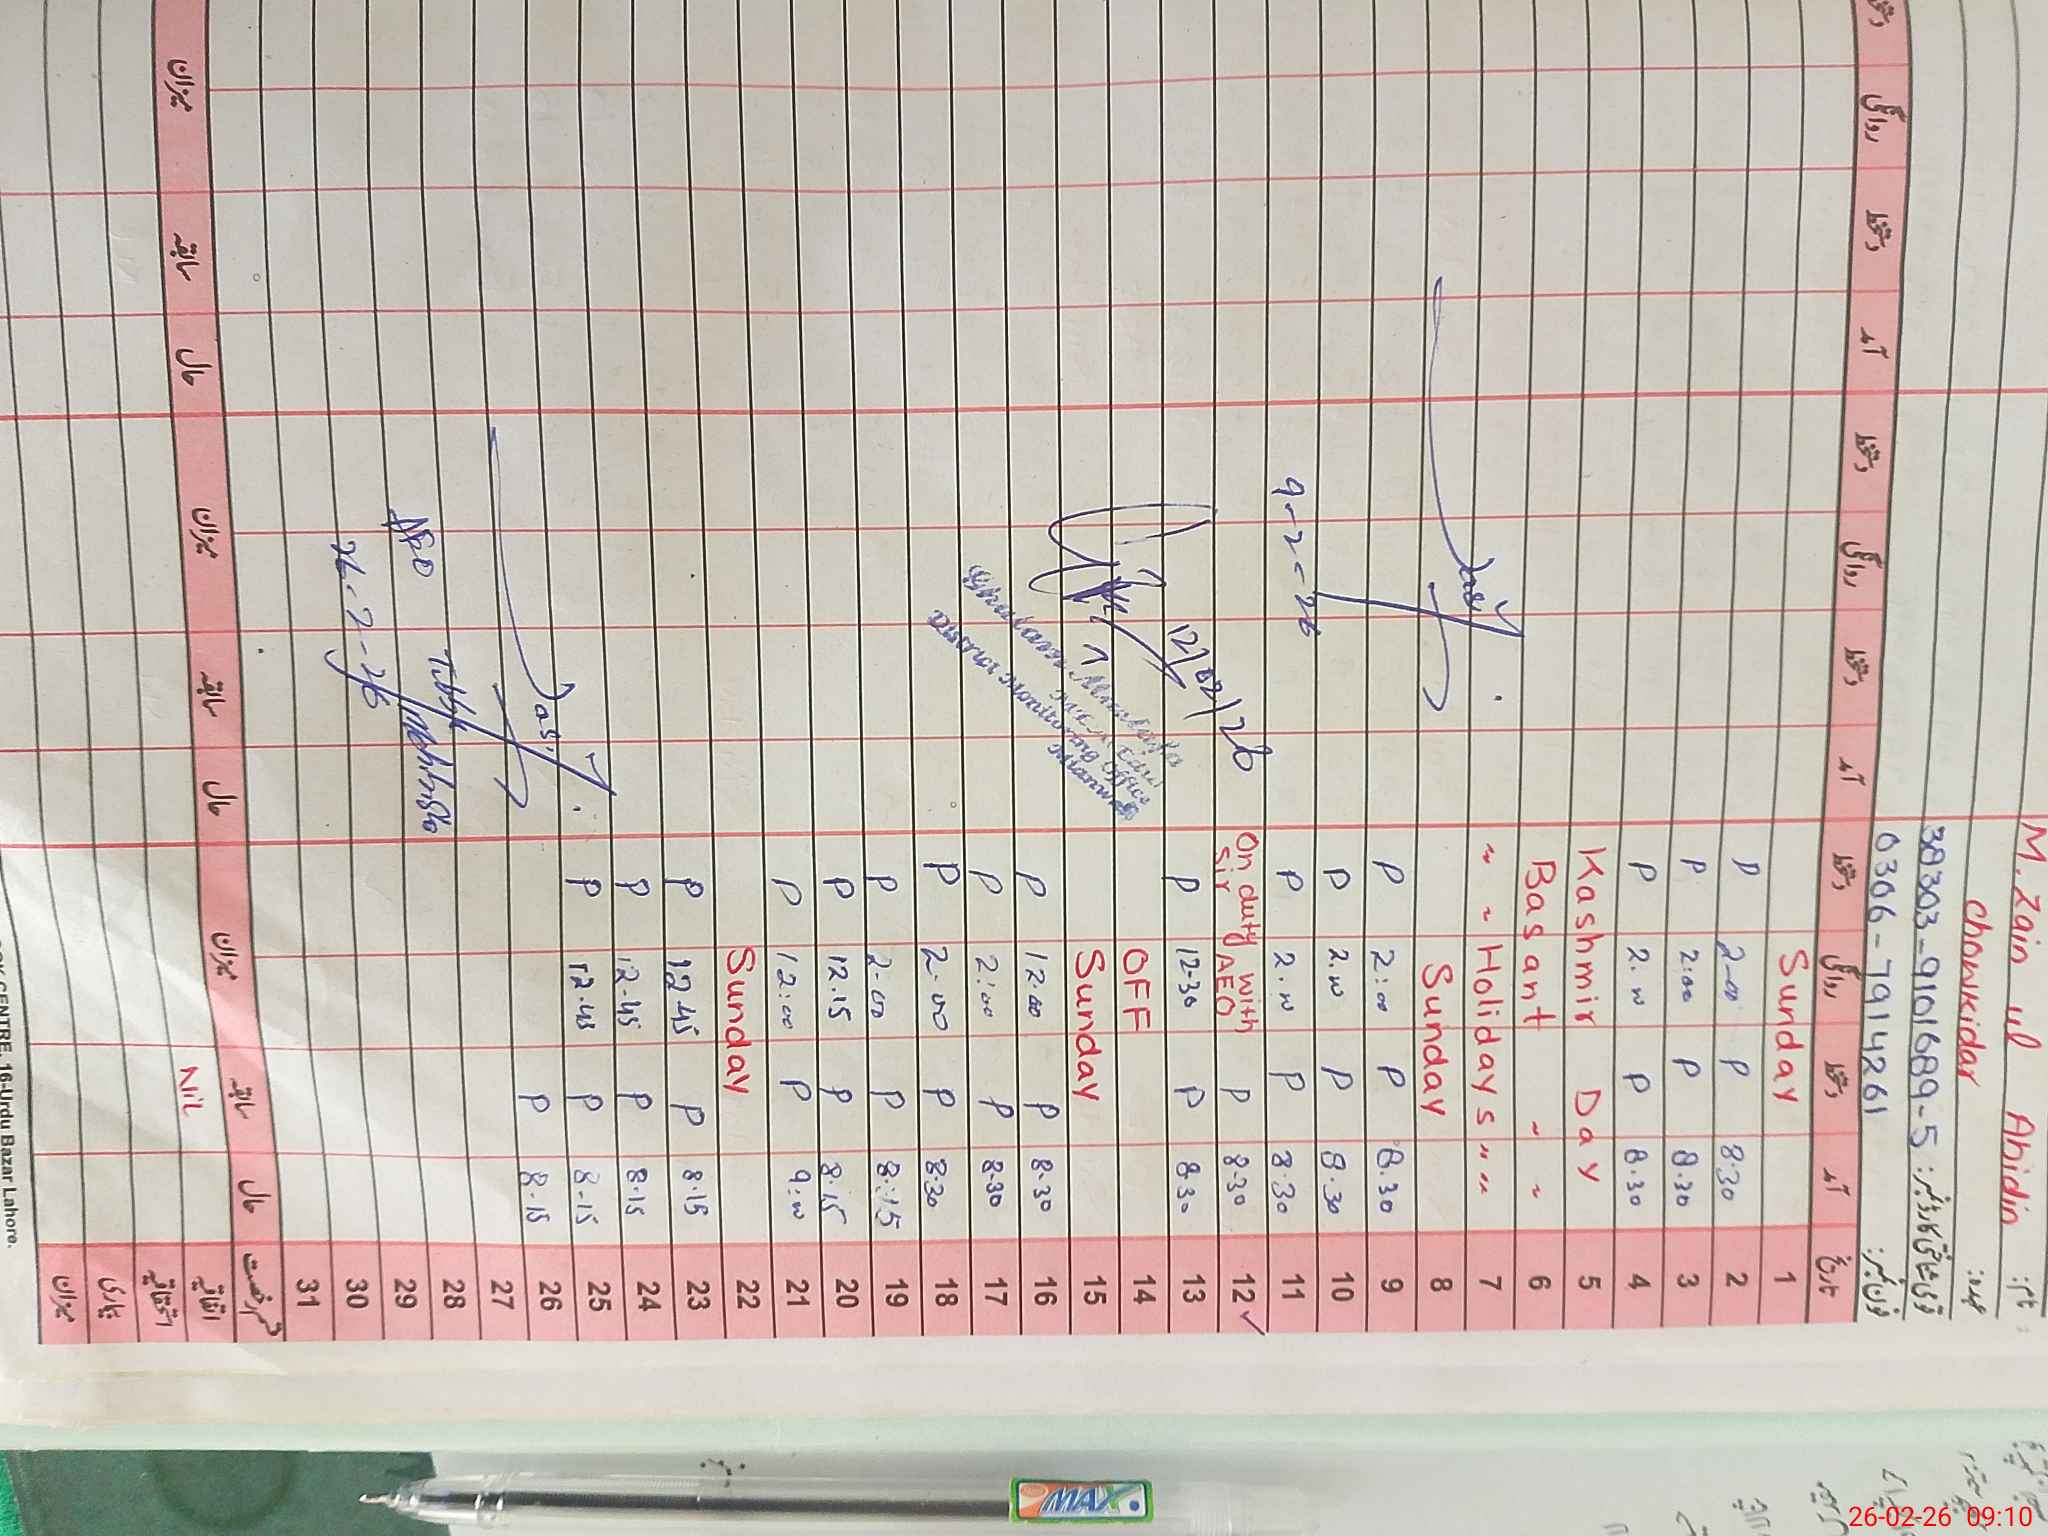 نام: M. Zain ul Abidin
عہدہ: Chowkidar
قومی شناختی کارڈ نمبر: 38303-9101689-5
فون نمبر: 0306-7914261
تاریخ آمد دستخط روانگی دستخط آمد دستخط روانگی دستخط آمد دستخط روانگی
1 Sunday
2 8.30 P 2-00 P
3 8.30 P 2:00 P
4 8.30 P 2.00 P
5 Kashmir Day
6 Basant " "
7 " " Holidays " "
8 Sunday
9 8.30 P 2:00 P
10 8.30 P 2.00 P
11 8.30 P 2.00 P
9-2-26
12 ✓ 8.30 P On duty with Sir AEO
12/02/26
13 8.30 P 12-30 P
14 OFF
15 Sunday
Ghulam Murtaza
District Monitoring Office
Mianwali
16 8.30 P 12.00 P
17 8.30 P 2:00 P
18 8.30 P 2.00 P
19 8:15 P 2.00 P
20 8.15 P 12.15 P
21 9:00 P 12:00 P
22 Sunday
23 8.15 P 12.45 P
24 8.15 P 12.45 P
25 8.15 P 12.45 P
26 8.15 P
27
28
29
30
31
AEO Tibbi
26-2-26
قسم رخصت حال سابقہ میزان حال سابقہ میزان حال سابقہ میزان
اتفاقیہ Nil
استحقاقیہ
بیماری
میزان
CENTRE, 16-Urdu Bazar Lahore.
MAX
26-02-26 09:10